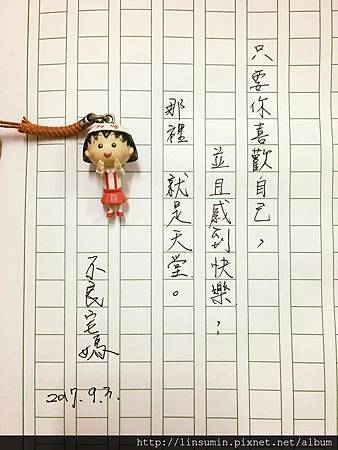 只要你喜歡自己，
並且感到快樂，
那裡 就是天堂。
不良宅媽
2017.9.7.
http://linsumin.pixnet.net/album